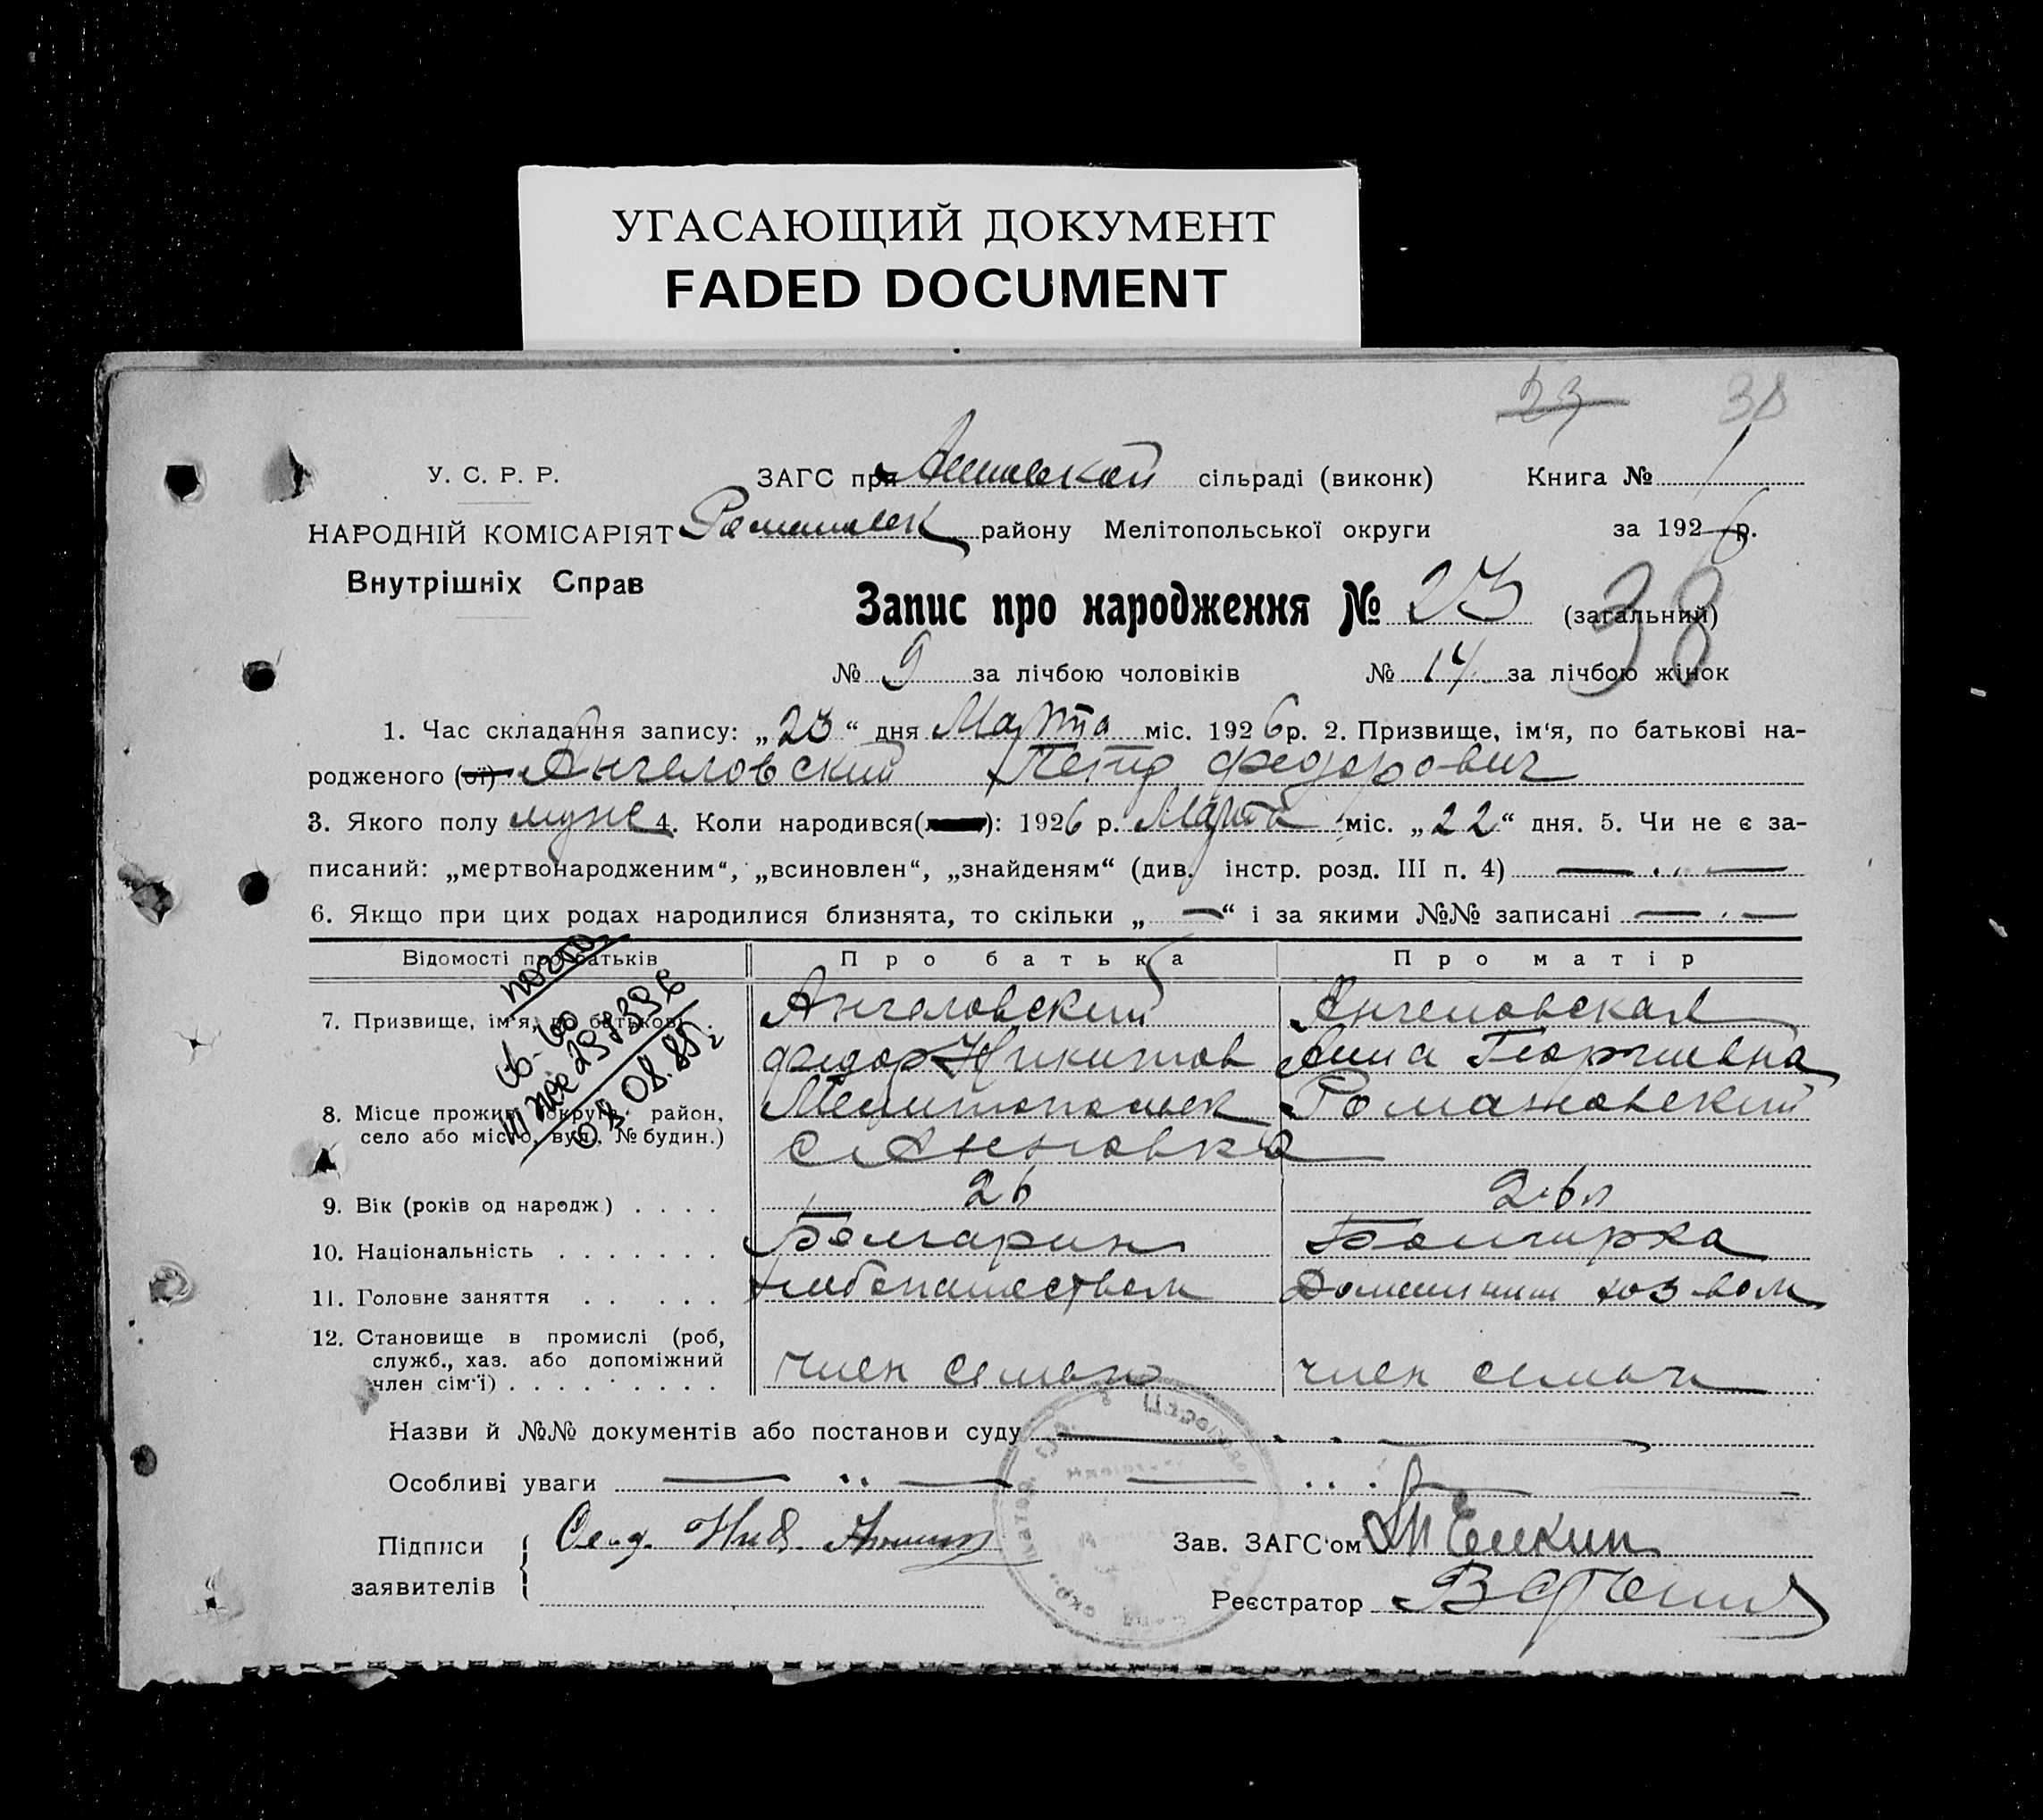 УГАСАЮЩИЙ ДОКУМЕНТ
FADED DOCUMENT
23 38
У. С. Р. Р. ЗАГС при Анновской сільраді (виконк) Книга № 1
НАРОДНІЙ КОМІСАРІЯТ Романовск району Мелітопольської округи за 1926 р.
Внутрішніх Справ
Запис про народження № 23 (загальний) 38
№ 9 за лічбою чоловіків № 14 за лічбою жінок
1. Час складання запису: „23“ дня Марта міс. 1926 р. 2. Призвище, ім‘я, по батькові на-
родженого (ої) Ангеловский Петр Федорович
3. Якого полу муже 4. Коли народився( ): 1926 р. Марта міс. „22“ дня. 5. Чи не є за-
писаний: „мертвонародженим“, „всиновлен“, „знайденям“ (див. інстр. розд. III п. 4)
6. Якщо при цих родах народилися близнята, то скільки „—“ і за якими №№ записані
Відомості про батьків Про батька Про матір
7. Призвище, ім‘я, по батькові Ангеловский Ангеловская
Федор Никитов Анна Георгиевна
8. Місце прожив. (округа, район, Мелитопольск Романовский
село або місто, вул., № будин.) с Анновка
9. Вік (років од народж) 26 26 л
10. Національність Болгарин Болгарка
11. Головне заняття хлебопашеством Домашним хоз-вом
12. Становище в промислі (роб,
служб., хаз. або допоміжний
член сім‘ї) член семьи член семьи
повто
св-во
08.85г
Назви й №№ документів або постанови суду
Особливі уваги
Підписи Зав. ЗАГС‘ом
заявителів Реєстратор